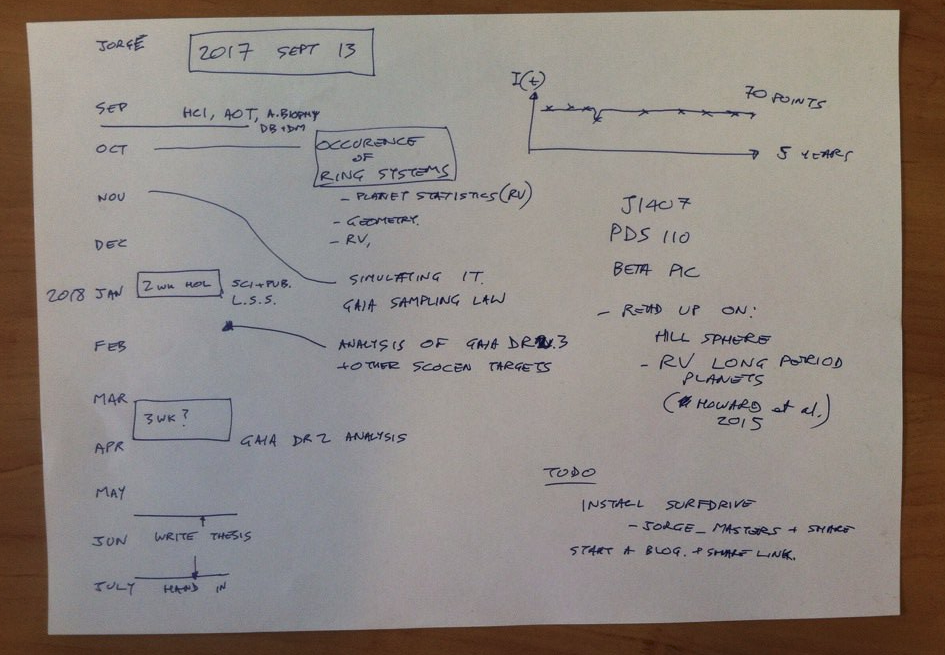 JORGE
2017 SEPT 13
SEP HCI, AOT, A.BIOPHY
DB+DM
OCT
OCCURENCE
OF
RING SYSTEMS
- PLANET STATISTICS (RV)
- GEOMETRY.
- RV,
NOV
SIMULATING IT.
GAIA SAMPLING LAW
DEC
2018 JAN 2 WK HOL SCI+PUB.
L.S.S.
FEB
ANALYSIS OF GAIA DR 3
+OTHER SCOCEN TARGETS
MAR
3 WK?
APR GAIA DR2 ANALYSIS
MAY
JUN WRITE THESIS
JULY HAND IN
I(t)
70 POINTS
5 YEARS
J1407
PDS 110
BETA PIC
- READ UP ON:
HILL SPHERE
- RV LONG PERIOD
PLANETS
(HOWARD et al.)
2015
TODO
INSTALL SURFDRIVE
- JORGE_MASTERS + SHARE
START A BLOG. + SHARE LINK.